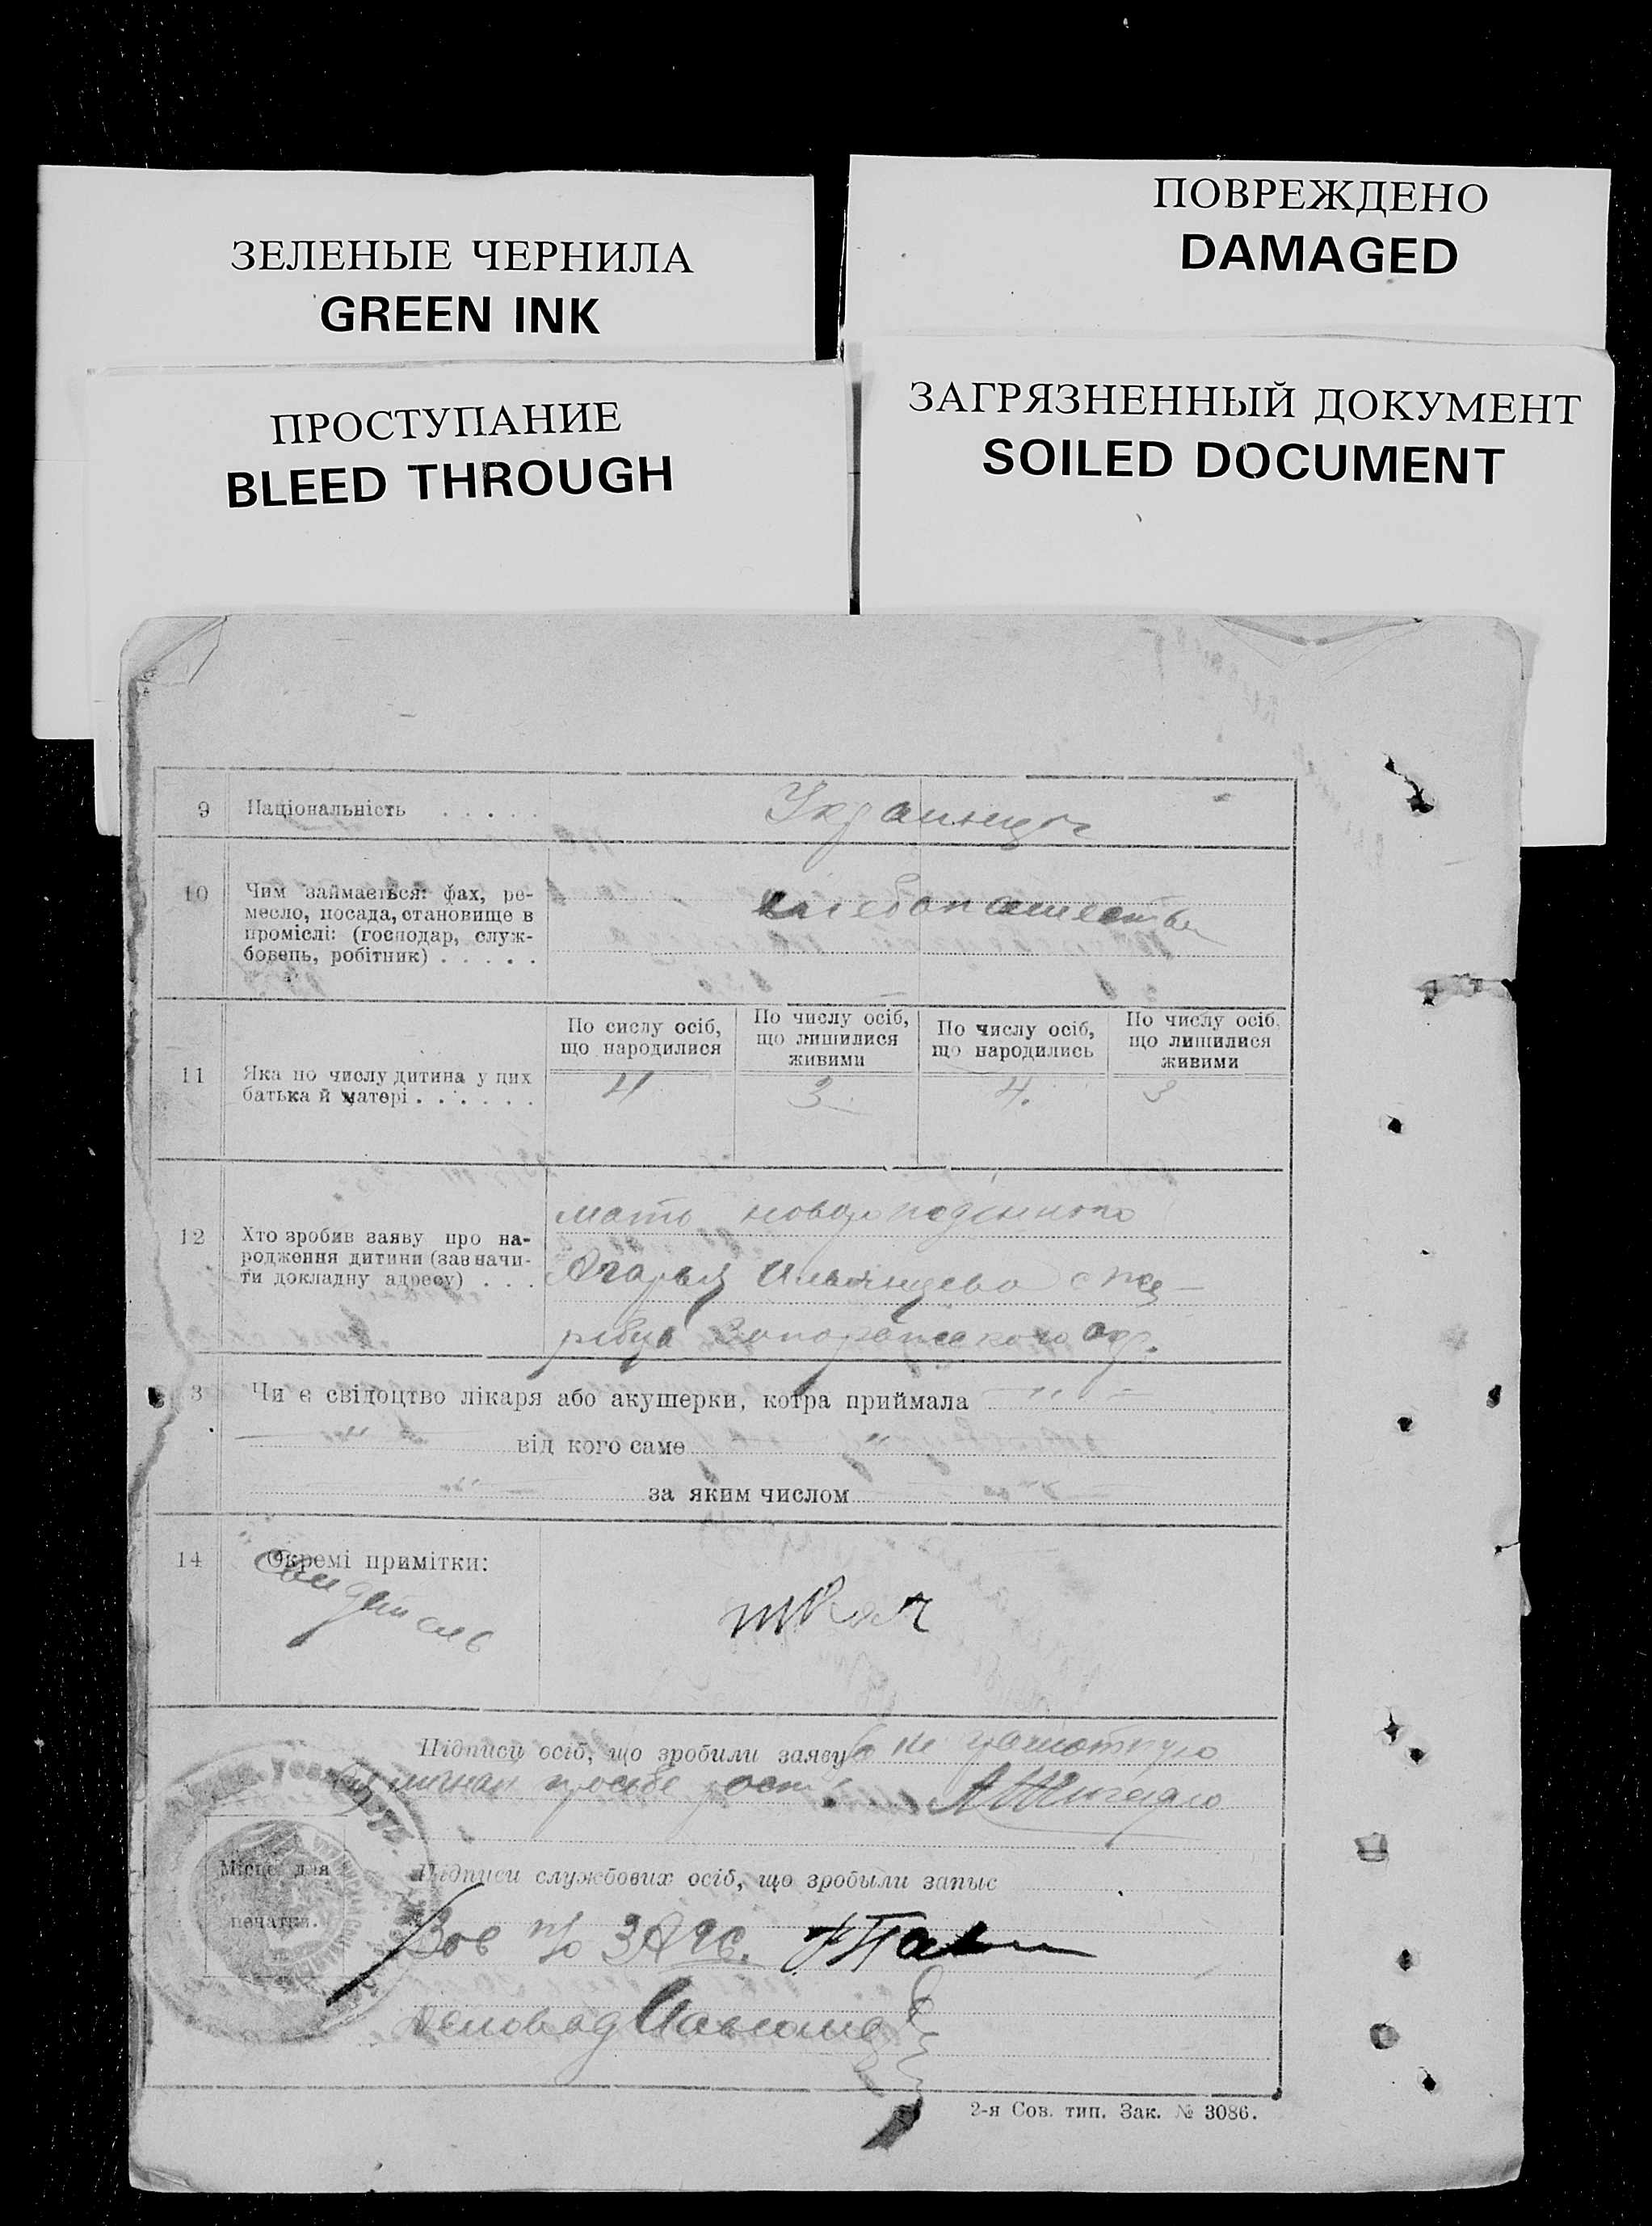 ЗЕЛЕНЫЕ ЧЕРНИЛА
GREEN INK
ПОВРЕЖДЕНО
DAMAGED
ПРОСТУПАНИЕ
BLEED THROUGH
ЗАГРЯЗНЕННЫЙ ДОКУМЕНТ
SOILED DOCUMENT
9 Національність . . . . .
Украинцы
10 Чим займається: фах, ре-
месло, посада, становище в
проміслі: (господар, служ-
бовець, робітник) . . . . .
хлебопашество
11 Яка по числу дитина у цих
батька й матері . . . . . .
По сислу осіб,
що народилися
4
По числу осіб,
що лишилися
живими
3
По числу осіб,
що народились
4.
По числу осіб,
що лишилися
живими
3
12 Хто зробив заяву про на-
родження дитини (завначи-
ти докладну адресу) . . .
мать
с Же-
ребца Запорожского окр.
3 Чи є свідоцтво лікаря або акушерки, котра приймала
від кого саме
за яким числом
14 Окремі примітки:
Свидетель
Підписи осіб, що зробили заяву за не грамотную
личной просьбе
Місце для
печатки.
Підписи службових осіб, що зробыли запыс
Зав п/о ЗАГС.
Деловод
2-я Сов. тип. Зак. № 3086.